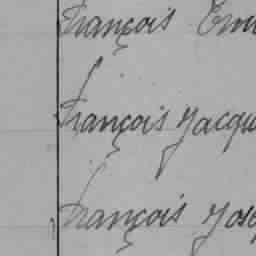 François
François Jacqu
François Jose